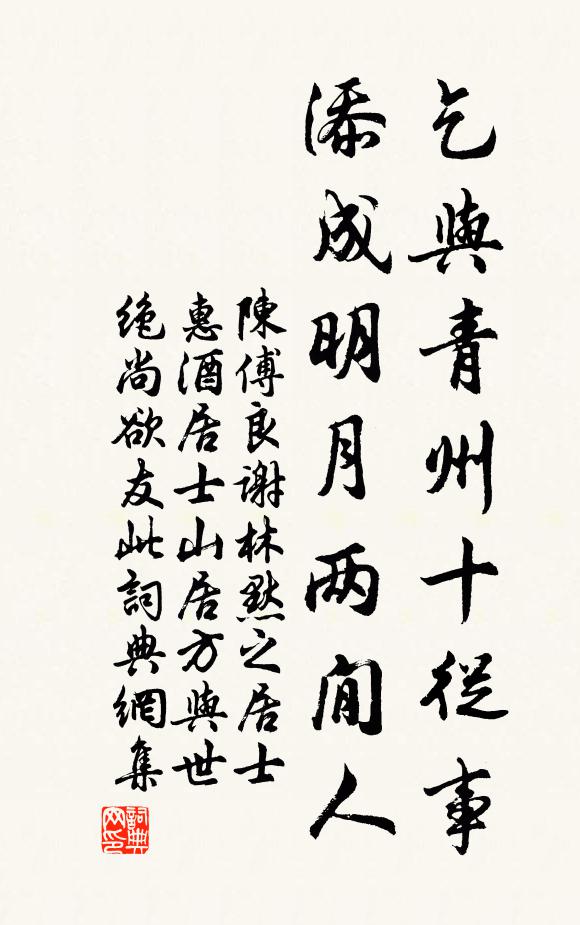 乞與青州十從事
添成明月两間人
陳傅良謝林黙之居士
惠酒居士山居方與世
絶尚欲友此詞典網集
詞典网印